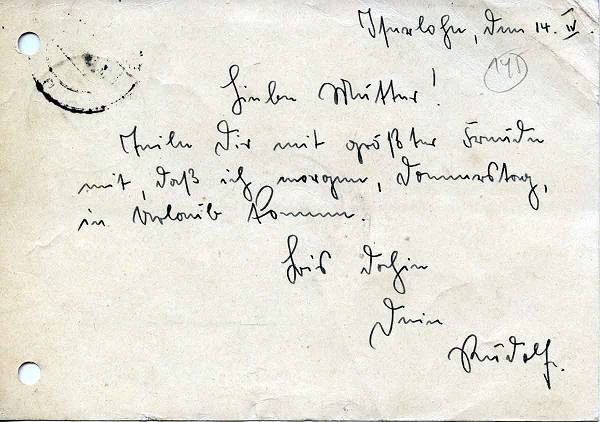 Iserlohn, den 14. IV.
141
Liebe Mutter!
Teile Dir mit größter Freude
mit, daß ich morgen, Donnerstag,
in Urlaub komme.
Bis dahin
Dein
Rudolf.